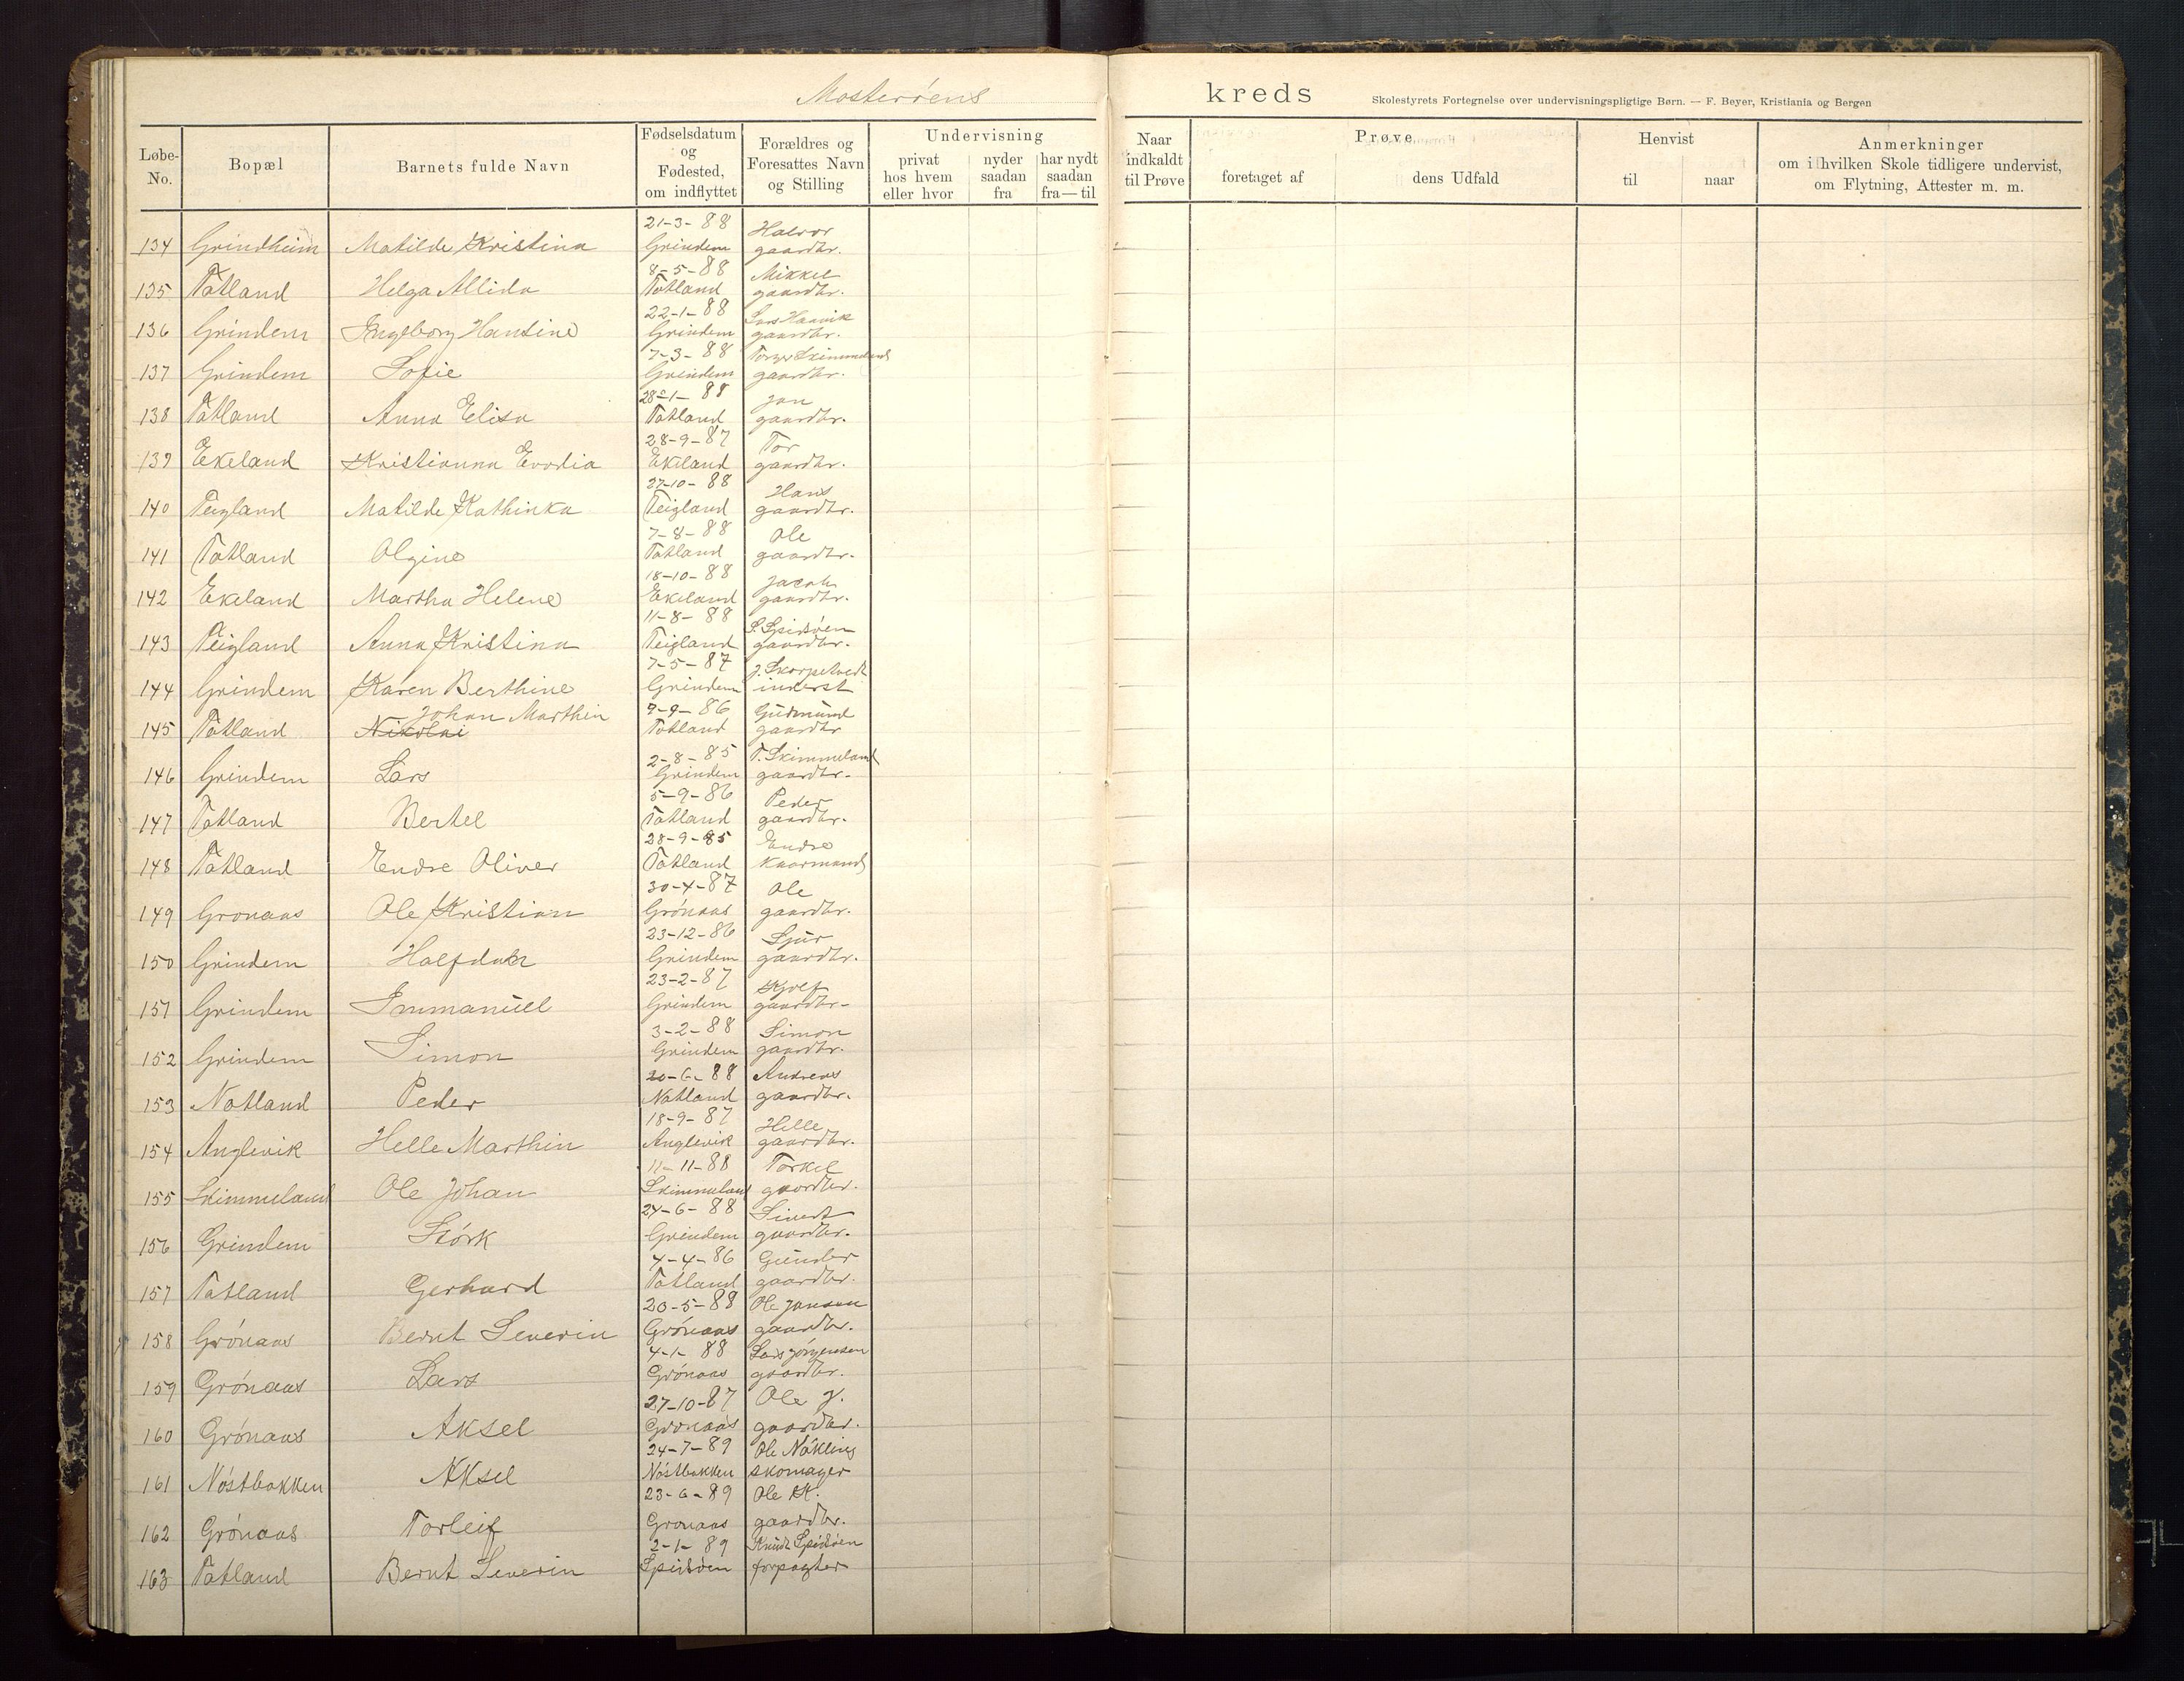 Mosterøens kreds Skolestyrets Fortegnelse over undervisningspligtige Børn. — F. Beyer, Kristiania og Bergen
Løbe-No. Bopæl Barnets fulde Navn Fødselsdatum og Fødested, om indflyttet Forældres og Foresattes Navn og Stilling Undervisning privat hos hvem eller hvor nyder saadan fra har nydt saadan fra—til Naar indkaldt til Prøve Prøve foretaget af dens Udfald Henvist til naar Anmerkninger om i hvilken Skole tidligere undervist, om Flytning, Attester m. m.
134 Grindheim Matilde Kristina 21-3-88 Grindem Halvor gaardbr.
135 Totland Helga Allida 8-5-88 Totland Mikkel gaardbr.
136 Grindem Ingeborg Hansine 22-1-88 Grindem Lars Haavik gaardbr.
137 Grindem Sofie 7-3-88 Grindem Torger Skimmeland gaardbr.
138 Totland Anna Elisa 28-1-88 Totland Jan gaardbr.
139 Ekeland Kristianna Evodia 28-9-87 Ekeland Tor gaardbr.
140 Teigland Matilde Kathinka 27-10-88 Teigland Hans gaardbr.
141 Totland Olgine 7-8-88 Totland Ole gaardbr.
142 Ekeland Martha Helene 18-10-88 Ekeland Jacob gaardbr.
143 Teigland Anna Kristina 11-8-88 Teigland S. Spidsøen gaardbr.
144 Grindem Karen Berthine 7-5-87 Grindem J. Skorpetvedt inderst
145 Totland Nikolai Johan Marthin 9-9-86 Totland Gudmund gaardbr
146 Grindem Lars 2-8-85 Grindem T. Skimmeland gaardbr.
147 Totland Bertel 5-9-86 Totland Peder gaardbr.
148 Totland Endre Oliver 28-9-85 Totland Endre Kaarmand
149 Gronaas Ole Kristian 30-4-87 Grónaas Ole gaardbr.
150 Grindem Halfdan 23-12-86 Grindem Sjur gaardbr.
151 Grindem Immanuel 23-2-87 Grindem gaardbr.
152 Grindem Simon 3-2-88 Grindem Simon gaardbr.
153 Notland Peder 20-6-88 Notland Andreas gaardbr.
154 Anglevik Helle Marthin 18-9-87 Anglevik Helle gaardbr.
155 Skimmeland Ole Johan 11-11-88 Skimmeland Torkel gaardbr.
156 Grindem Störk 24-6-88 Grindem Sivert gaardbr.
157 Totland Gerhard 4-4-86 Totland Gunder gaardbr.
158 Grónaas Bernt Severin 20-5-88 Grónaas Ole Jansen gaardbr.
159 Grónaas Lars 4-1-88 Grónaas Lars Jörgensen gaardbr.
160 Grónaas Aksel 27-10-87 Grónaas Ole J. gaardbr.
161 Nóstbakken Aksel 24-7-89 Nóstbakken Ole Nökling skomager
162 Grónaas Torleif 23-6-89 Gronaas Ole K. gaardbr.
163 Totland Bernt Severin 2-1-89 Speidsøen Knudt Speidsøen forpagter